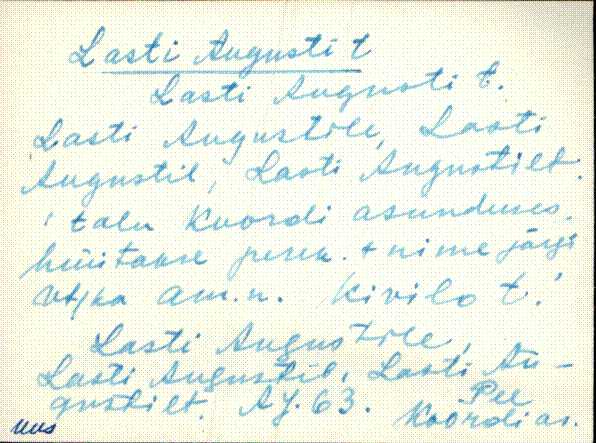 Lasti Augusti t
Lasti Augusti t.
Lasti Augustile, Lasti
Augustil, Lasti Augustilt.
'talu Koordi asunduses.
hüütakse peren. + nime järgi
Vt/ka am.n. Kivilo t.'
Lasti Augustile,
Lasti Augustil, Lasti Au-
gustilt. AJ. 63. Pee
Koordi as.
uus